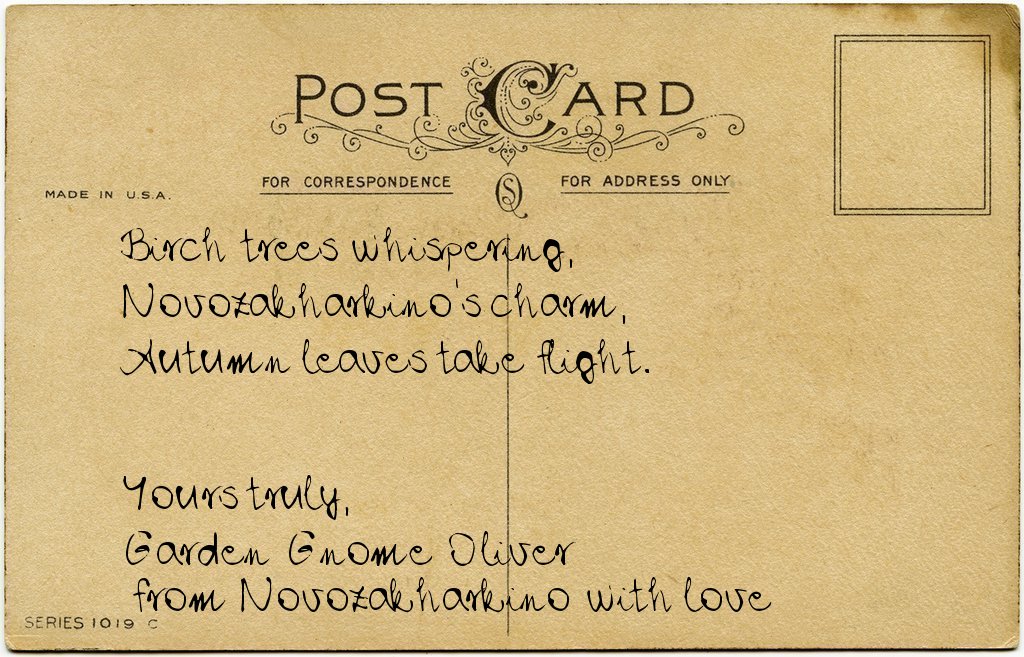 POST CARD
FOR CORRESPONDENCE
FOR ADDRESS ONLY
MADE IN U.S.A.
Birch trees whispering,
Novozakharkino's charm,
Autumn leaves take flight.
Yours truly,
Garden Gnome Oliver
from Novozakharkino with love
SERIES 1019 C